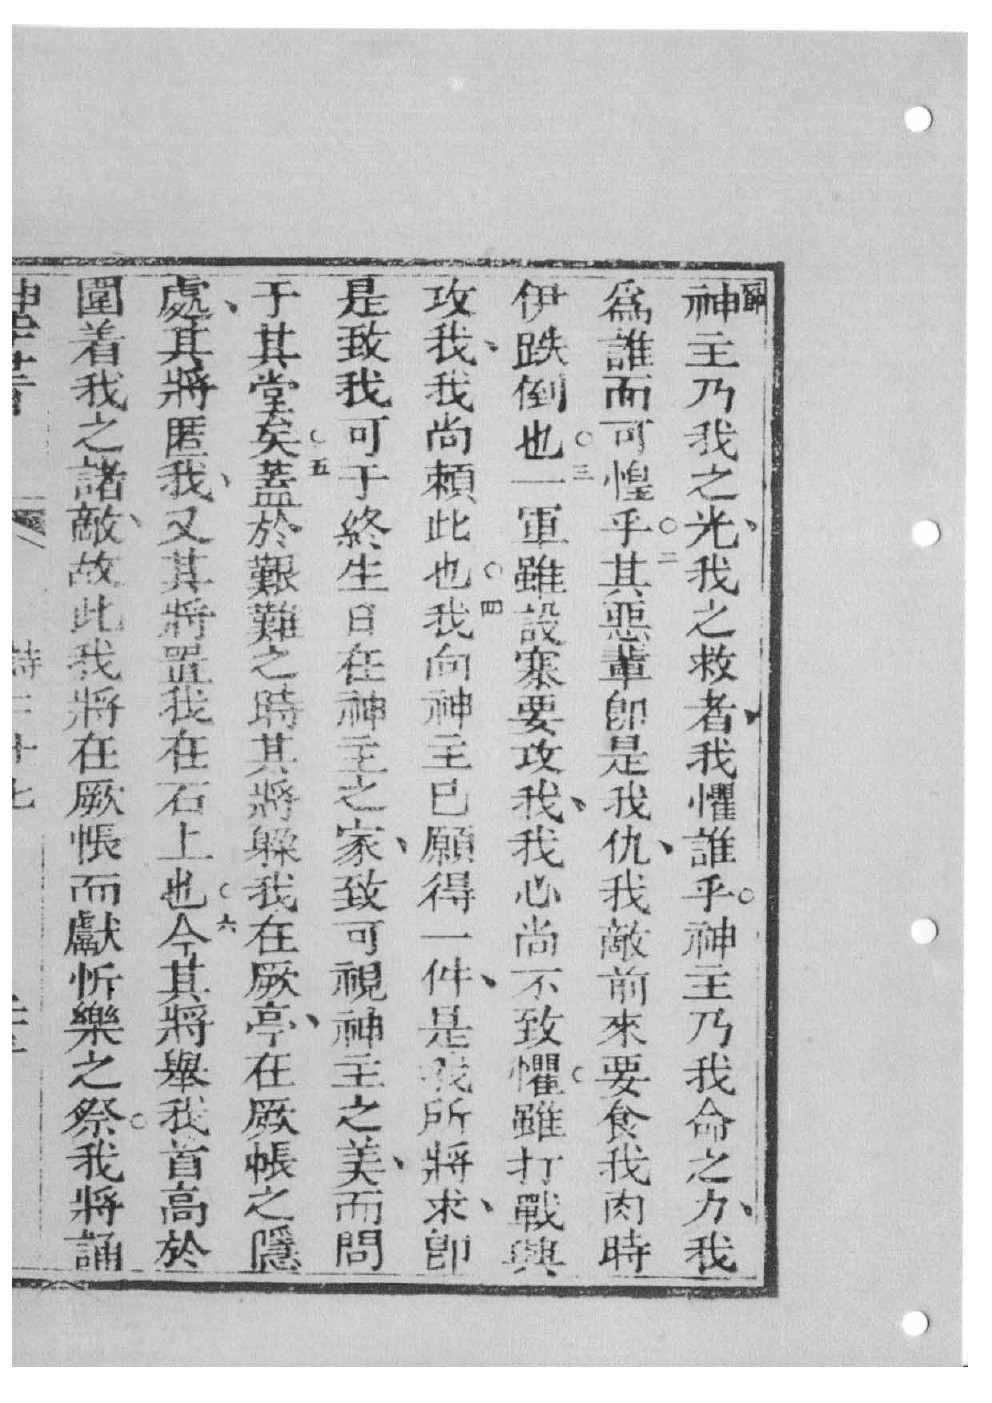 神主乃我之光、我之救者、我懼誰乎。神主乃我命之力、我
爲誰而可惶乎。二其惡輩卽是我仇、我敵前來要食我肉時
伊跌倒也。三一軍雖設寨要攻我、我心尚不致懼。雖打戰興
攻我、我尚賴此也。四我向神主已願得一件、是我所將求、卽
是致我可于終生日在神主之家、致可視神主之美、而問
于其堂矣。五蓋於艱難之時其將躲我在厥亭、在厥帳之隱
處、其將匿我、又其將置我在石上也。六今其將舉我首高於
圍着我之諸敵、故此我將在厥帳而獻忻樂之祭。我將誦
神天聖書 詩二十七